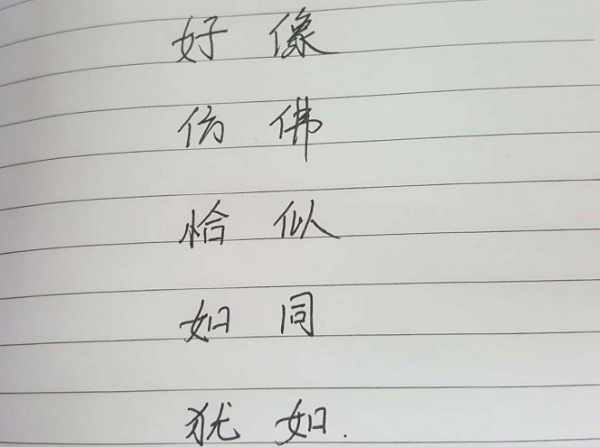 好像
仿佛
恰似
如同
犹如.